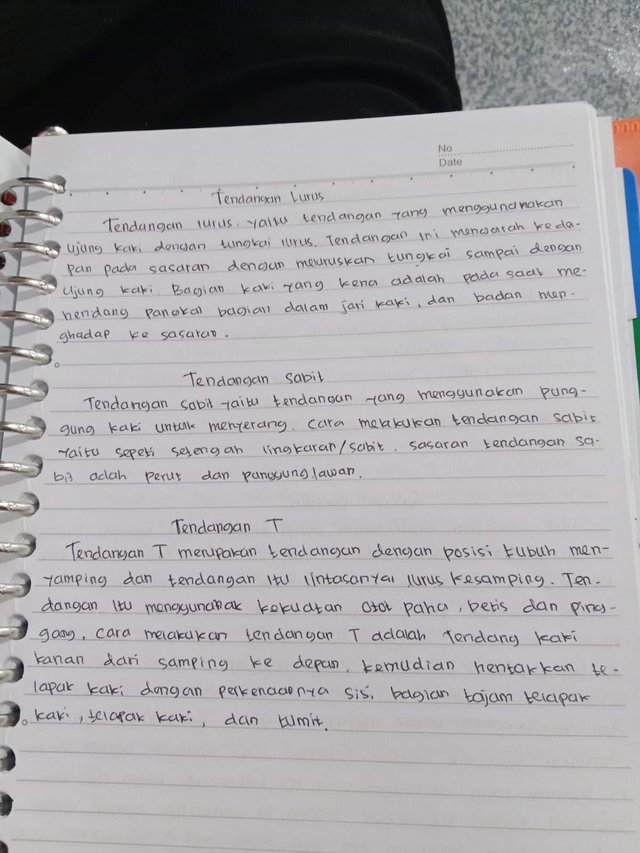 No
Date
Tendangan Lurus
Tendangan lurus, yaitu tendangan yang menggundnakan
Ujung kaki dengan tungkai lurus. Tendangan ini mengarah keda-
pan pada sasaran dengan meluruskan tungkai sampai dengan
Ujung kaki. Bagian kaki yang kena adalah pada saat me-
nendang pangkal bagian dalam jari kaki, dan badan men-
ghadap ke sasaran.
Tendangan Sabit
Tendangan sabit yaitu tendangan yang menggunakan pung-
gung kaki untuk menyerang. cara melakukan tendangan sabit
yaitu seperti setengah lingkaran/sabit. sasaran tendangan sa-
bit adlah perut dan panggung lawan.
Tendangan T
Tendangan T merupakan tendangan dengan posisi tubuh men-
yamping dan tendangan itu lintasanyai lurus kesamping. Ten-
dangan itu menggunakak kekuatan otot paha, betis dan ping-
gang, cara melakukan tendangan T adalah Tendang kaki
kanan dari samping ke depan, kemudian hentakkan te-
lapak kaki dengan perkenaannya sisi bagian tajam telapak
kaki, telapak kaki, dan tumit.